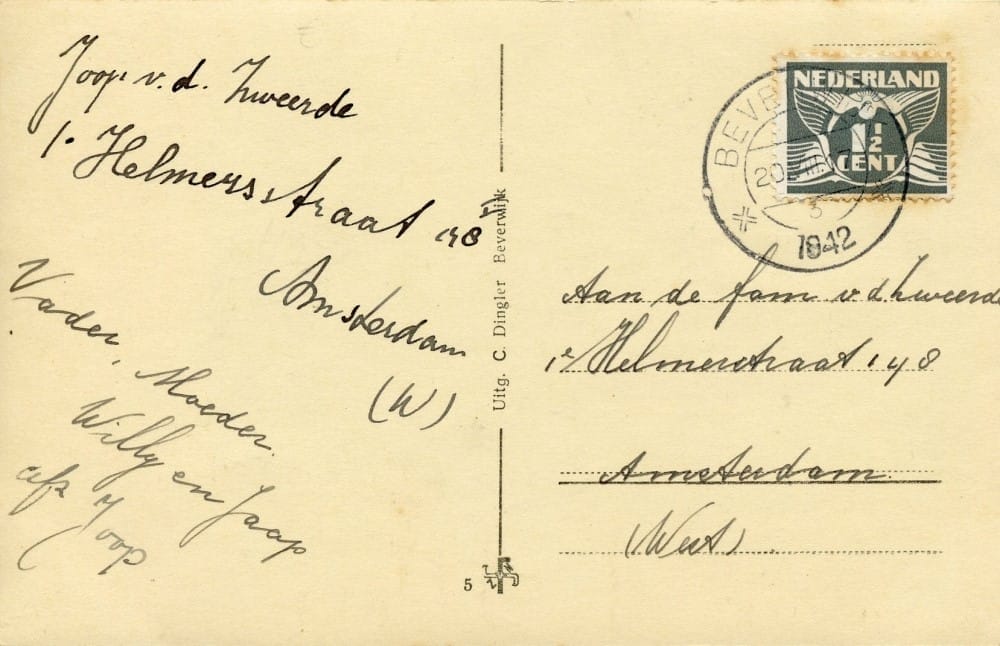 Joop v.d. Zweerde
1e Helmersstraat 148
Amsterdam
(W)
Vader, Moeder.
Willy en Jaap
afz Joop
Uitg. C. Dingler Beverwijk
5
NEDERLAND
1½
CENT
BEVE
20 VIII
3
1942
Aan de fam v.d. Zweerde
1e Helmerstraat 148
Amsterdam
(West)